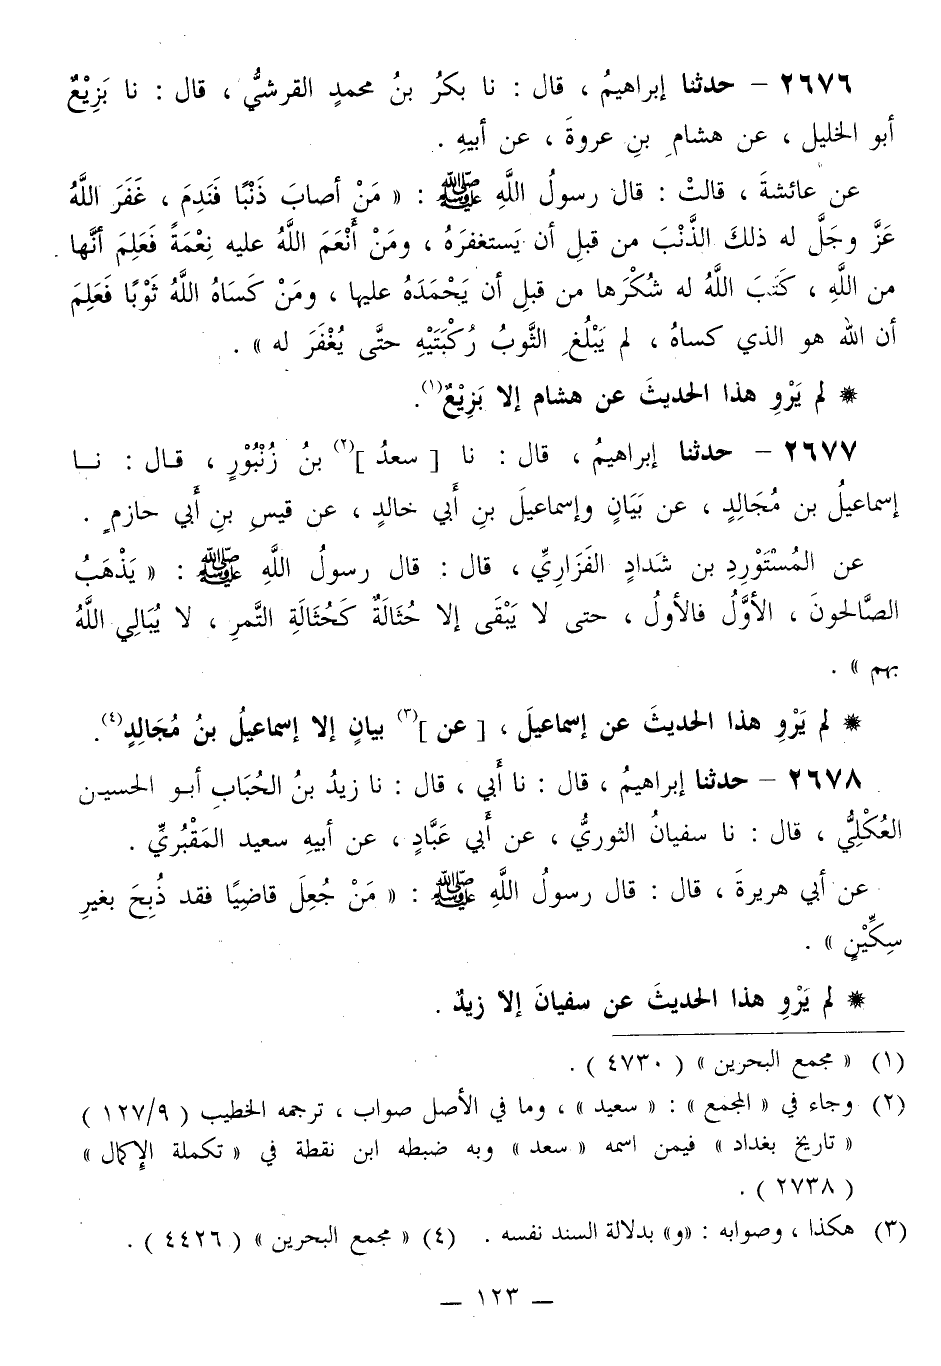 ٢٦٧٦ – حدثنا إبراهيمُ ، قال : نا بكرُ بنُ محمدٍ القرشيُّ ، قال : نا بَزِيْعٌ
أبو الخليل ، عن هشام بنِ عروةَ ، عن أبيهِ .
عن عائشةَ ، قالتْ : قال رسولُ اللَّهِ ﷺ : « مَنْ أصابَ ذَنْبًا فَنَدِمَ ، غَفَرَ اللَّهُ
عَزَّ وجَلَّ له ذلكَ الذَّنْبَ من قبلِ أن يَستغفرَهُ ، ومَنْ أَنْعَمَ اللَّهُ عليه نِعْمَةً فَعَلِمَ أنَّها
من اللَّهِ ، كَتَبَ اللَّهُ له شُكْرَها من قبلِ أن يَحْمَدَهُ عليها ، ومَنْ كَسَاهُ اللَّهُ ثَوْبًا فَعَلِمَ
أن الله هو الذي كساهُ ، لم يَبْلُغِ الثَّوبُ رُكْبَتَيْهِ حتَّى يُغْفَرَ له » .
* لم يَرْوِ هذا الحديثَ عن هشام إلا بَزِيْعٌ(١).
٢٦٧٧ – حدثنا إبراهيمُ ، قال : نا [ سعدُ ](٢) بنُ زُنْبُوْرٍ ، قال : نا
إسماعيلُ بن مُجَالِدٍ ، عن بَيَانٍ وإسماعيلَ بنِ أبي خالدٍ ، عن قيسِ بنِ أبي حازمٍ .
عن المُسْتَوْرِدِ بن شَدادٍ الفَزَاريِّ ، قال : قال رسولُ اللَّهِ ﷺ : « يَذْهَبُ
الصَّالحونَ ، الأوَّلُ فالأولُ ، حتى لا يَبْقَى إلا حُثَالَةٌ كَحُثَالَةِ التَّمرِ ، لا يُبَالِي اللَّهُ
بهم » .
* لم يَرْوِ هذا الحديثَ عن إسماعيلَ ، [ عن ](٣) بيانٍ إلا إسماعيلُ بنُ مُجَالِدٍ(٤).
٢٦٧٨ – حدثنا إبراهيمُ ، قال : نا أَبي ، قال : نا زيدُ بنُ الحُبَابِ أبو الحسين
العُكْلِيُّ ، قال : نا سفيانُ الثوريُّ ، عن أَبي عَبَّادٍ ، عن أبيهِ سعيد المَقْبُريِّ .
عن أبي هريرةَ ، قال : قال رسولُ اللَّهِ ﷺ : « مَنْ جُعِلَ قاضِيًا فقد ذُبِحَ بغيرِ
سِكِّيْنٍ » .
* لم يَرْوِ هذا الحديثَ عن سفيانَ إلا زيدٌ .
(١) « مجمع البحرين » ( ٤٧٣٠ ) .
(٢) وجاء في « المجمع » : « سعيد » ، وما في الأصل صواب ، ترجمه الخطيب ( ١٢٧/٩ )
« تاريخ بغداد » فيمن اسمه « سعد » وبه ضبطه ابن نقطة في « تكملة الإكمال »
( ٢٧٣٨ ) .
(٣) هكذا ، وصوابه : «و» بدلالة السند نفسه . (٤) « مجمع البحرين » ( ٤٤٢٦ ) .
– ١٢٣ –